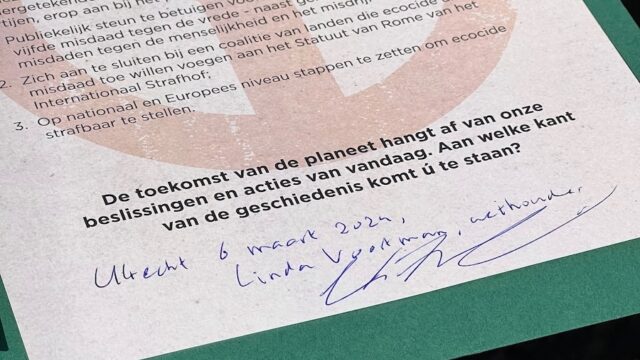 tijen, erop aan bij het
Publiekelijk steun te betuigen
vijfde misdaad tegen de vrede - naast
misdaden tegen de menselijkheid en het misdrij
2. Zich aan te sluiten bij een coalitie van landen die ecocide
misdaad toe willen voegen aan het Statuut van Rome van het
Internationaal Strafhof;
3. Op nationaal en Europees niveau stappen te zetten om ecocide
strafbaar te stellen.
De toekomst van de planeet hangt af van onze
beslissingen en acties van vandaag. Aan welke kant
van de geschiedenis komt ú te staan?
Utrecht 6 maart 2024,
Linda Voortman, wethouder